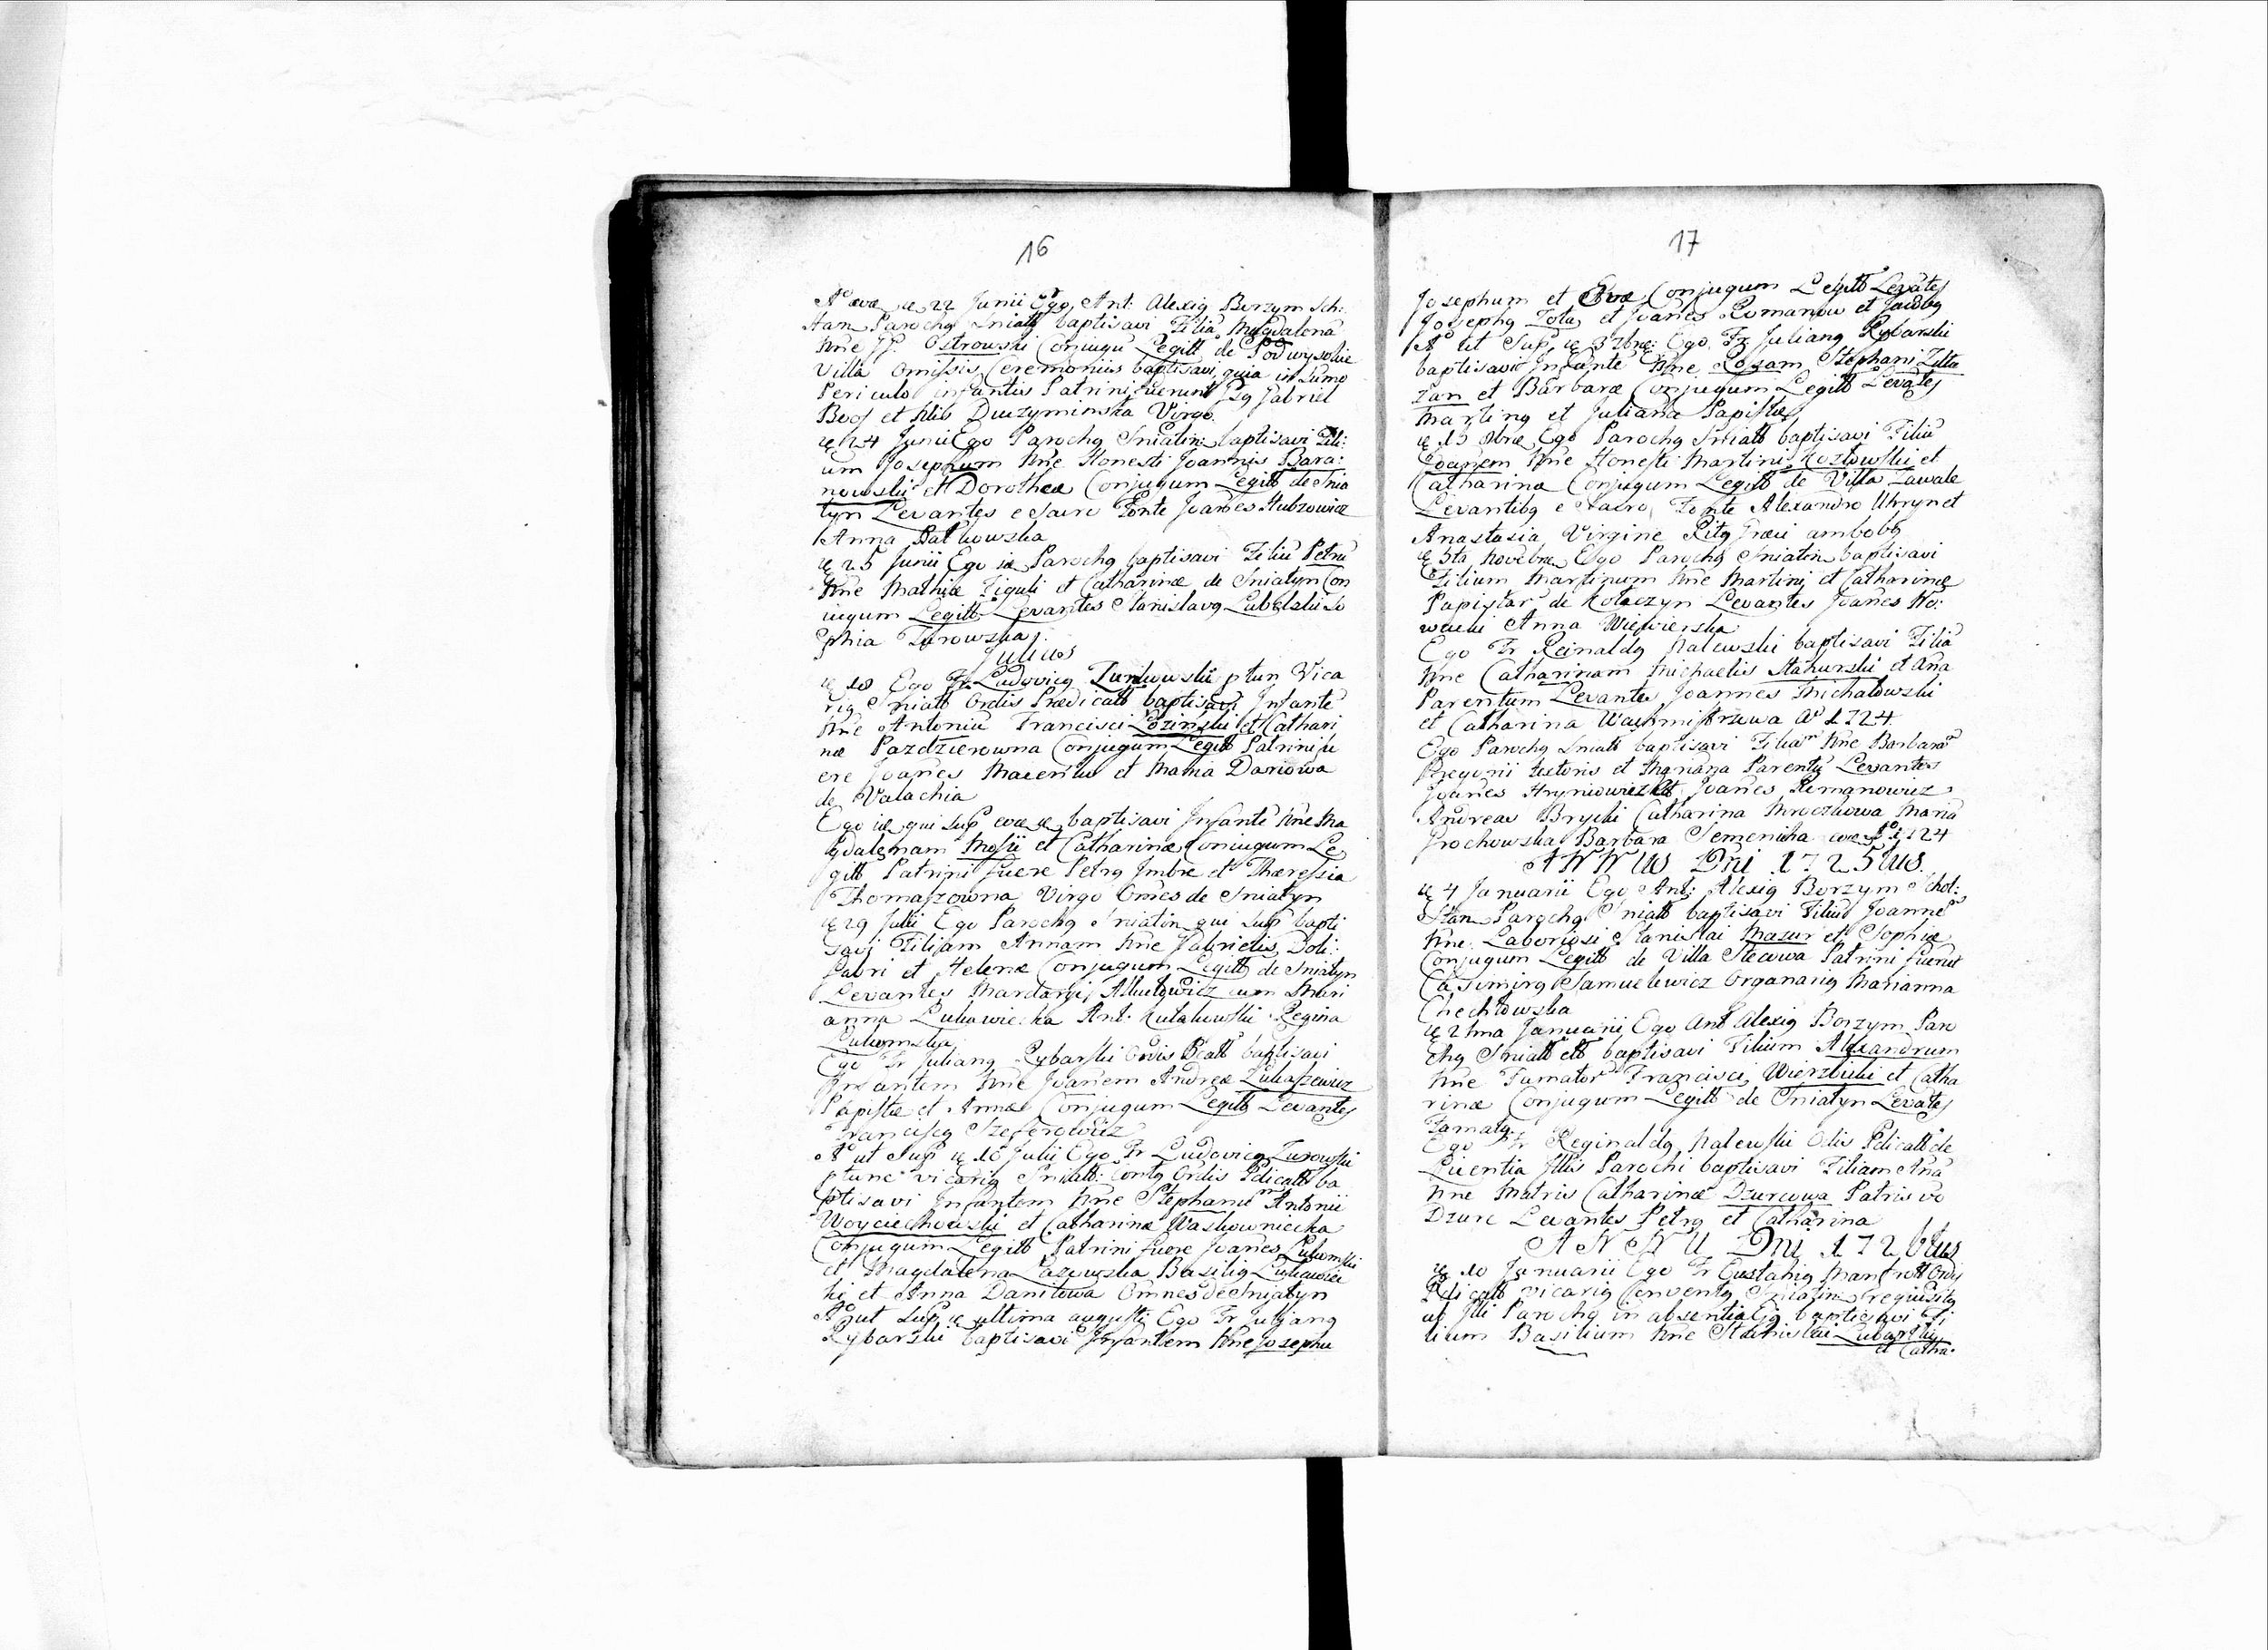 16
Aº eode die 22 Junii Ego Ant: Alexig Borzym Sch:
Stan Parochg Sniatt baptisavi Filiã Magdalena
Nne JP. Ostrowski Conjugũ Legitt de Podwysokie
Villa Omissis Ceremoniis baptisavi quia in sumo
Periculo infantis Patrini fuerunt Gabriel
et Duszyminska Virgo.
24 Junii Ego Parochg Sniatin: baptisavi Fili:
um Josephum Nne Honesti Joannis Bara:
nowski et Dorothea Conjugum Legitt de Snia
tyn Levantes e Sacro Fonte Joannes
Anna
25 Junii Ego id Parochg baptisavi Filiũ Petrũ
Nne Mathiæ Figuli et Catharinæ de Sniatyn Con
iugum Legitt Levantes Stanislavg Lubelski So
phia Turowska
Julius
18 Ego Fr Ludovicg ptun Vica
rig Sniatt Ordis Prædicatt baptisavi Infantẽ
Nne Antoniũ Francisci Lozinski et Cathari
næ Pazdzierowna Conjugum Legitt Patrini fu
ere Joanes et Maria Danowa
de Valachia
Ego id qui sup eode die baptisavi Infantẽ Nne Ma
gdalenam Mosii et Catharinæ Conjugum Le
gitt Patrini fuere Petrg Imbre et Theressia
Thomaszowna Virgo Omes de Sniatyn
29 Julii Ego Parochg Sniatin qui sup bapti
savi Filiam Annam Nne Gabrielis Doli:
Fabri et Helenæ Conjugum Legitt de Sniatyn
Levantes cum Mari
anna Lukawiecka Ant: Kulakowski Regina
Lukomska
Ego Fr Juliang Rybarski Ordis Pcatt baptisavi
Infantem Nne Joanem Andreæ Lukaszewicz
Papistæ et Annæ Conjugum Legitt Levantes
Franciscg Szeferowicz
Aº ut Sup 16 Julii Ego Fr Ludovicg Zurowski
ptunc vicarig Sniatt: Contg Ordis Pdicatt ba
ptisavi Infantem Nne Stephanũ Antonii
Woyciechowski et Catharinæ Waskowniecka
Conjugum Legitt Patrini fuere Joanes Lukomski
et Magdalena Lazowska Basilig Lukawiec
ki et Anna Danilowa Omnes de Sniatyn
Aº ut Sup ultima augusti Ego Fr Juliang
Rybarski baptisavi Infantem Nne Josephu
17
Josephum et Evæ Conjugum Legitt Levãtes
Josephg Zota et Joanes Romanow et Jacobg
Aº ut Sup 3 7bre: Ego Fr Juliang Rybarski
baptisavi Infante Nne Rosam Stephani Zilta
zan et Barbaræ Conjugum Legitt Levãtes
Marting et Juliana Papistæ
15 8bre Ego Parochg Sniatt baptisavi Filiũ
Joanem Nne Honesti Martini Kozlowski et
Catharinæ Conjugum Legitt de Villa Zawale
Levantibg e Sacro Fonte Alexandro Uhryn et
Anastasia Virgine Ritg Græci ambobg
5ta Novebre Ego Parochg Sniatin baptisavi
Filium Martinum Nne Martini et Catharinæ
Papistar de Kolaczyn Levantes Joanes No:
wacki Anna Wiewierska
Ego Fr Reinaldg Malewski baptisavi Filiã
Nne Catharinam Michaelis Stahurski et Ana
Parentum Levantes Joannes Michalowski
et Catharina Wachmistrzowa Aº 1724
Ego Parochg Sniatt baptisavi Filiam Nne Barbarã
Gregorii textoris et Mariana Parentũ Levantes
Joanes Hryniowiez Joanes Romanowicz
Andreas Brycki Catharina Mroczkowa Maria
Grochowska Barbara Semenicha eode Aº 1724
ANNUS Dni 1725tus.
4 Januarii Ego Ant: Alexig Borzym Schol:
Stan Parochg Sniatt baptisavi Filiũ Joannẽ
Nne Laboriosi Stanislai Mazur et Sophiæ
Conjugum Legitt de Villa Stecowa Patrini fuerut
Casimirg Samuelewicz Organarig Marianna
Chechlowska
21ma Januarii Ego Ant Alexig Borzym Paro
chg Sniatt ett baptisavi Filium Alexandrum
Nne Famator Francisci Wierzbicki et Catha
rinæ Conjugum Legitt de Sniatyn Levãtes
Famatg.
Ego Fr Reginaldg Malewski Odis Pdicatt de
Licentia Illis Parochi baptisavi Filiam Anã
Nne Matris Catharinæ Dzurcowa Patris vo
Dzurc Levantes Petrg et Catharina
ANNU Dni 1726tus
10 Januarii Ego Fr Eustahig Ordis
Pdicatt vicarig Conventg Sniatin requisitg
ab Illi Parochg in absentia Ejg baptisavi Fi
lium Basilium Nne Stanislai Lubarski
et Catha: